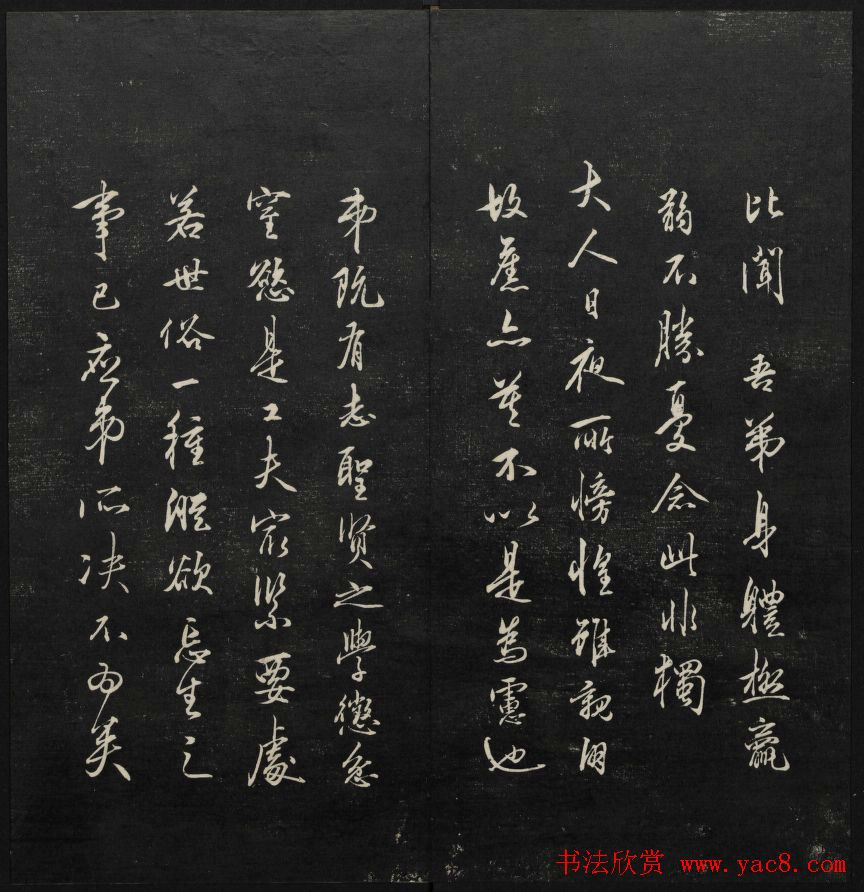 比闻吾弟身體極羸
弱不勝憂念此非獨
大人日夜所惶雖親朋
故舊亦莫不以是為慮也
弟既有志聖賢之學懲忿
窒慾是工夫最緊要處
若世俗一種縱欲忘生之
事已應弟所決不為矣
书法欣赏 www.yac8.com